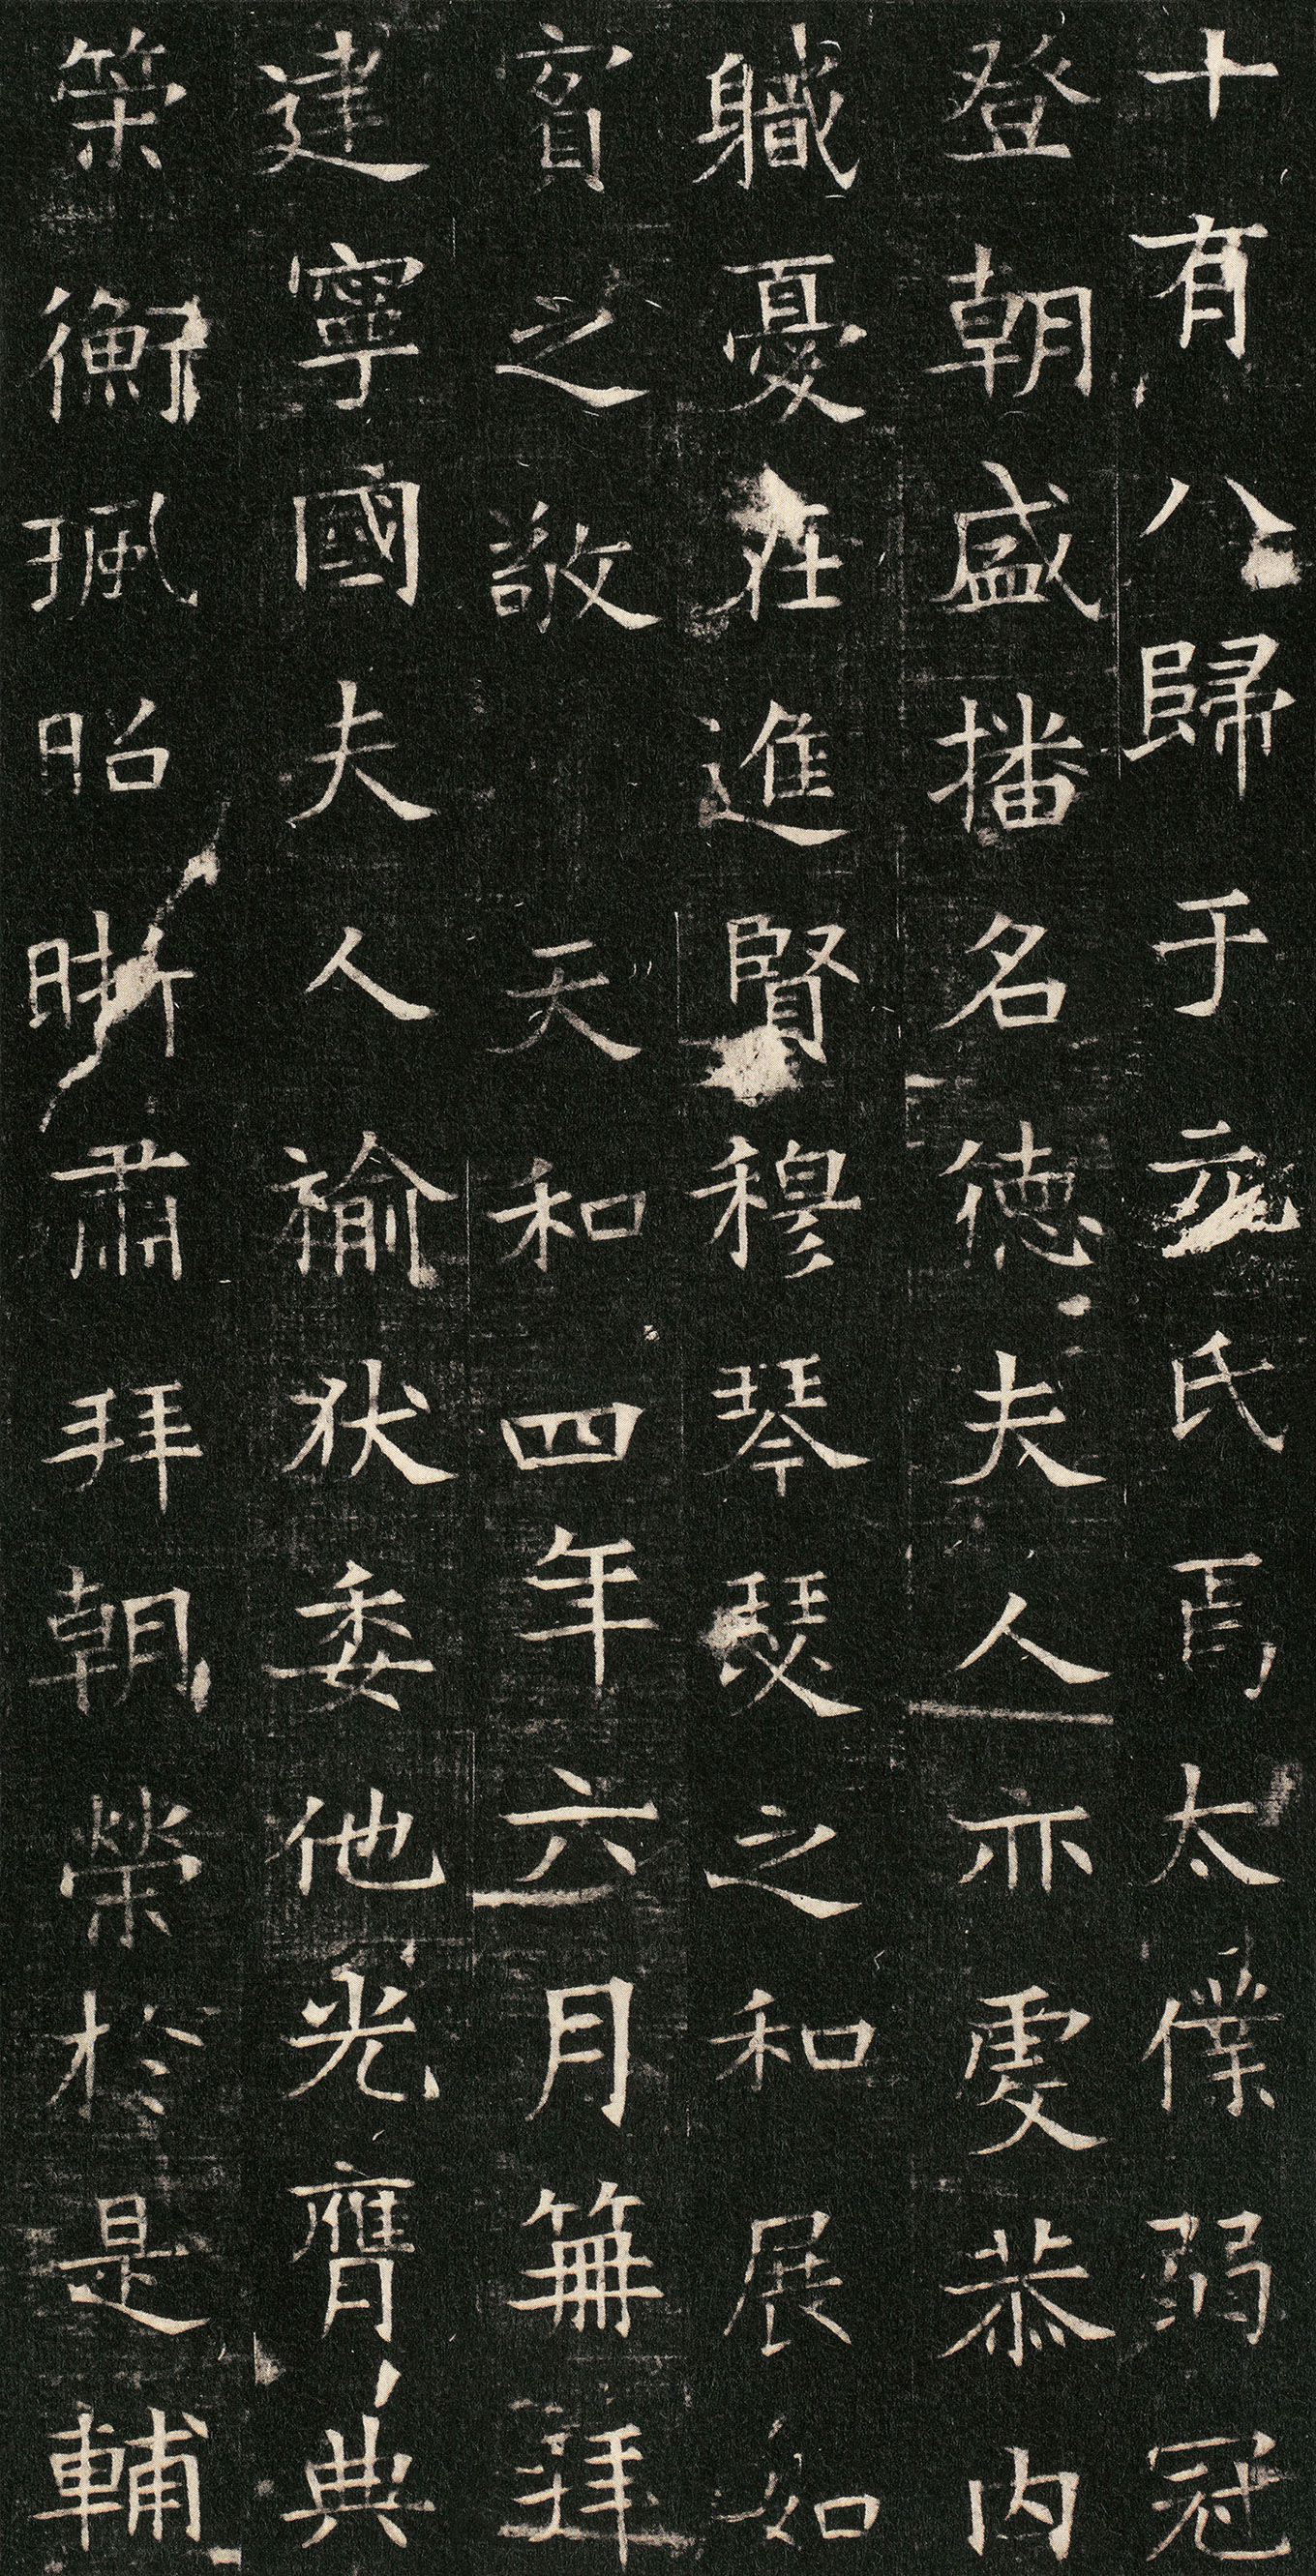 十有八歸于元氏焉太僕弱冠
登朝盛播名德夫人亦處恭內
職憂在進賢穆琴瑟之和展如
賓之敬天和四年六月冊拜
建寧國夫人褕狄委他光膺典
策衡珮昭晣肅拜朝榮於是輔